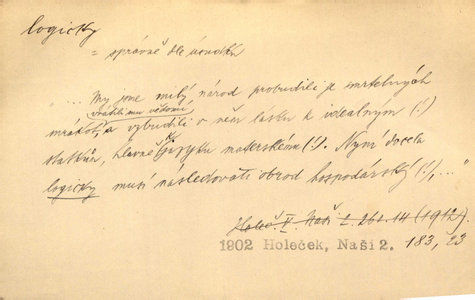 logicky
= správně dle úsudku
"... My jsme milý národ probudili ze smrtelných
vrátili mu vědomí
mrákot, a vzbudili v něm lásku k ideálným (!)
statkům, hlavně k jazyku mateřskému (!). Nyní docela
logicky musí následovati obrod hospodářský (!), ..."
Holeč. II. Naši 2. 261. 14 (1912).
1902 Holeček, Naší 2. 183, 23